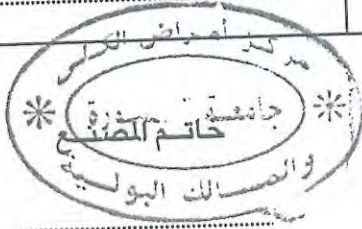 مركز أمراض الكلى
جامعة
خاتم المصنع
والمسالك البولية